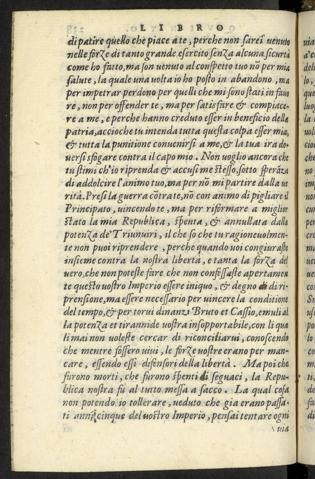 LIBRO
di patire quello che piace a te, perche non sarei venuto
nelle forze di tanto grande esercito senza alcuna sicurtà
come ho fatto, ma son venuto al conspetto tuo nō per mia
salute, la quale una volta io ho posto in abandono, ma
per impetrar perdono per quelli che mi sono stati in fauo
re, non per offender te, ma per satisfare & compiace-
re a me, e perche hanno creduto esser in beneficio della
patria, accioche tu intenda tutta questa colpa esser mia,
& tutta la punitione conuenirsi a me, & la tua ira do-
uersi sfogare contra il capo mio. Non uoglio ancora che
tu stimi ch'io riprenda & accusi me stesso, sotto sperāza
di addolcire l'animo tuo, ma per nō mi partire dalla ue
rità. Presi la guerra cōtra te, nō con animo di pigliare il
Principato, uincendo te, ma per riformare a miglior
stato la mia Republica, spenta, & annullata dalla
potenza de' Triunuiri, il che so che tu ragioneuolmen-
te non puoi riprendere, perche quando uoi congiuraste
insieme contra la nostra libertà, e tanta la forza del
uero, che non poteste fare che non confessaste apertamen
te questo uostro Imperio essere iniquo, & degno di ri-
prensione, ma essere necessario per uincere la conditione
del tempo, & per torui dinanzi Bruto et Cassio, emuli al
la potenza et tirannide uostra insopportabile, con li qua
li mai non uoleste cercar di riconciliarui, conoscendo
che mentre fossero uiui, le forze uostre erano per man-
care, essendo essi difensori della libertà. Ma poi che
furono morti, che furono spenti di seguaci, la Repu
blica nostra fù al tutto messa a sacco. La qual cosa
non potendo io tollerare, ueduto che gia erano passa-
ti anni cinque del uostro Imperio, pensai tentare ogni
uia